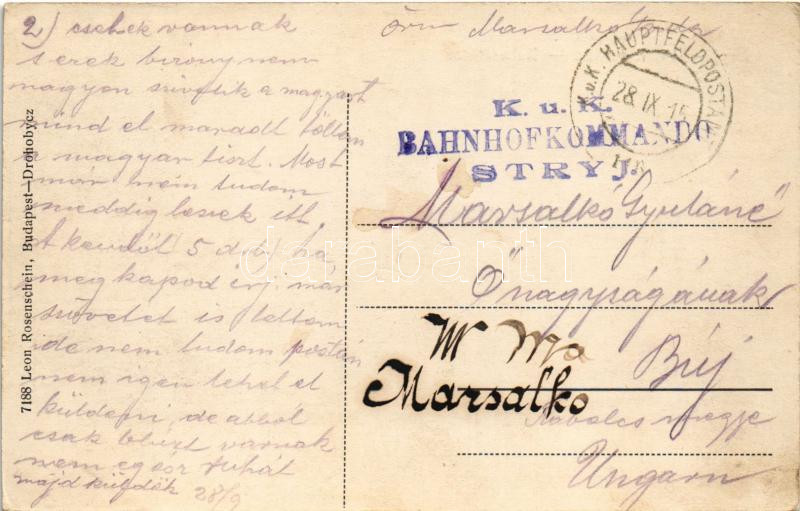 2) csehek vannak
s ezek bizony nem
nagyon szivelik a magyart
mind el maradt tőllem
a magyar tiszt. Most
már nem tudom
meddig leszek itt
5 dbot ha
meg kapod irj. már
szövetet is vettem
de nem tudom postán
nem igen lehet el
küldeni, de abból
csak vannak
nem egész ruhát
majd küldök 28/9
7188 Leon Rosenschein, Budapest—Drohobycz
K. u. K. HAUPTFELDPOSTAMT
28. IX. 15
K. u. K.
BAHNHOFKOMMANDO
STRYJ.
Marsalkó Gyuláné
Őnagyságának
Búj
Szabolcs megye
Ungarn
Marsalko
darabanth